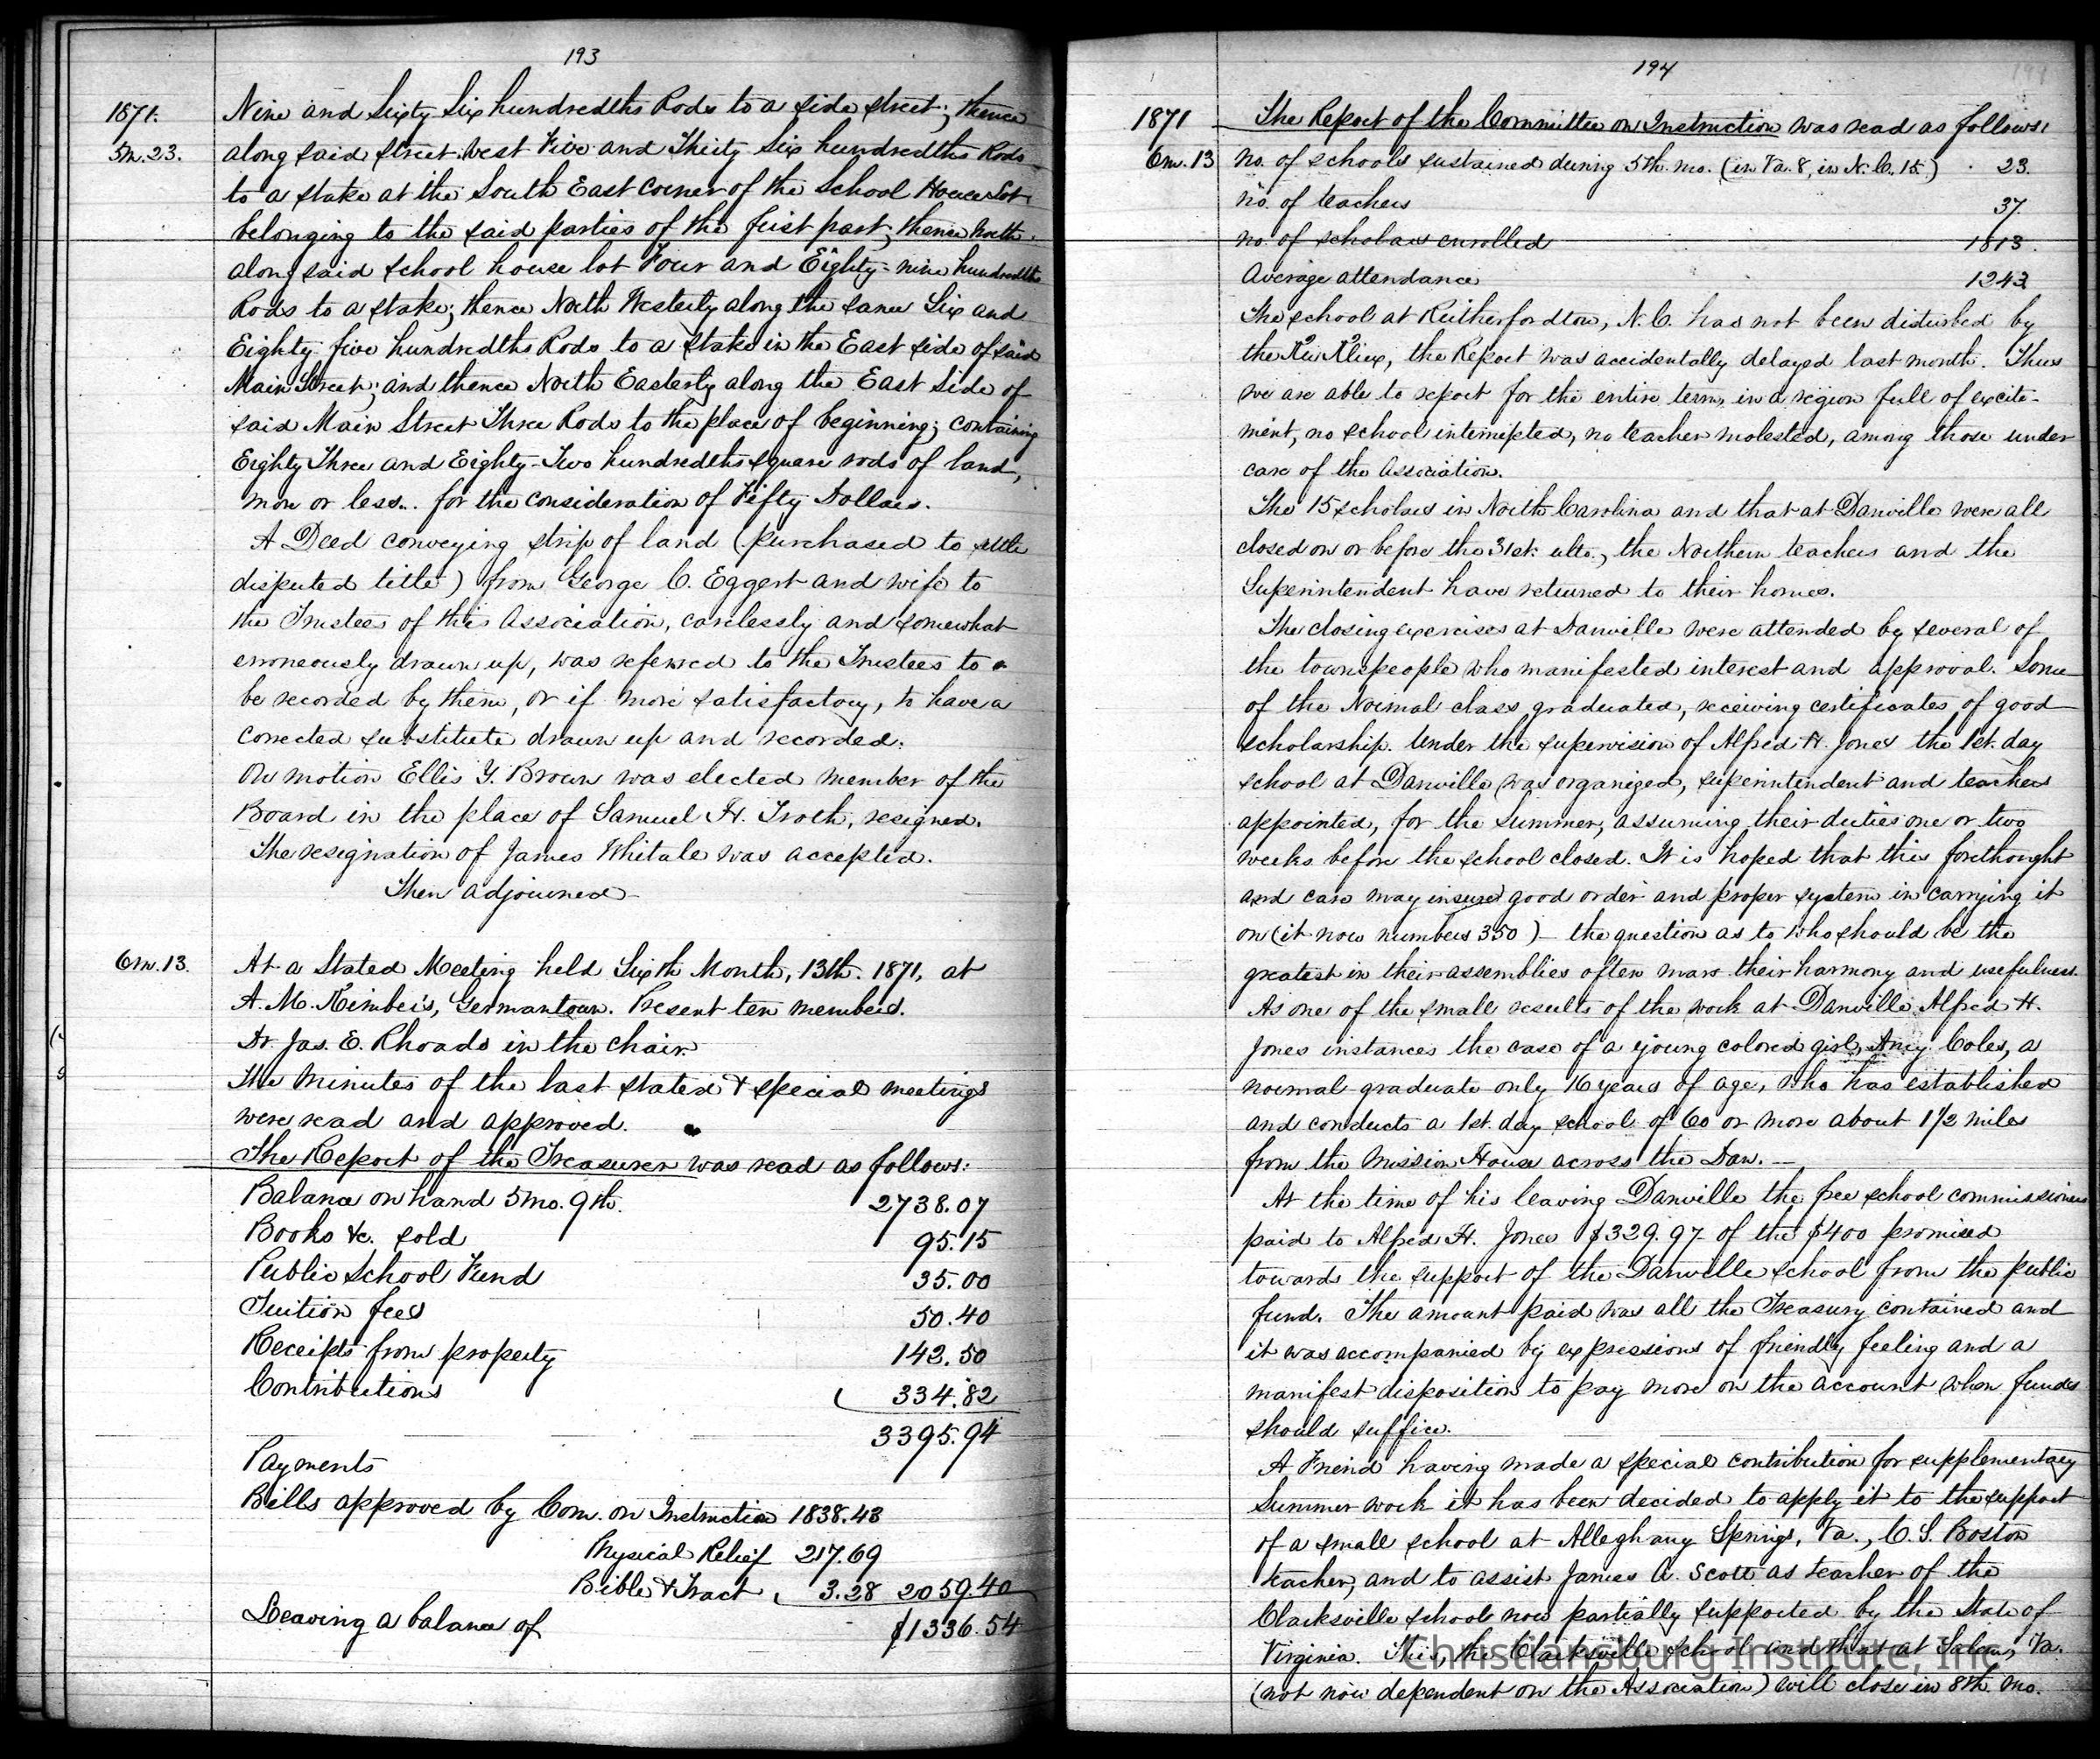 193
1871. Nine and Sixty Six hundredths Rods to a side street; thence
5m.23. along said street West Five and Thirty Six hundredths Rods
to a stake at the South East corner of the School House Lot
belonging to the said parties of the first part, thence North
along said school house lot Four and Eighty-nine hundredths
Rods to a stake; thence North Westerly along the same Six and
Eighty five hundredths Rods to a stake in the East side of said
Main Street; and thence North Easterly along the East Side of
said Main Street Three Rods to the place of beginning; containing
Eighty Three and Eighty-Two hundredths square rods of land,
more or less.. for the consideration of Fifty Dollars.
A Deed conveying strip of land (purchased to settle
disputed title) from George C. Eggert and wife to
the Trustees of this Association, carelessly and somewhat
erroneously drawn up, was referred to the Trustees to
be recorded by them, or if more satisfactory, to have a
corrected substitute drawn up and recorded.
On motion Ellis Y. Brown was elected member of the
Board in the place of Samuel H. Troth, resigned.
The resignation of James Whitale was accepted.
Then adjourned
6m.13. At a Stated Meeting held Sixth Month, 13th. 1871, at
A. M. Kimber's, Germantown. Present ten members.
Dr. Jas. E. Rhoads in the chair.
The Minutes of the last stated & special meetings
were read and approved.
The Report of the Treasurer was read as follows:
Balance on hand 5mo. 9th. 2738.07
Books &c. sold 95.15
Public School Fund 35.00
Tuition fees 50.40
Receipts from property 142.50
Contributions 334.82
3395.94
Payments
Bills approved by Com. on Instruction 1838.43
Physical Relief 217.69
Bible & Tract 3.28 2059.40
Leaving a balance of $1336.54
194
1871 The Report of the Committee on Instruction was read as follows:
6m.13 no. of schools sustained during 5th. mo. (in Va. 8, in N.C. 15.) 23.
no. of teachers 37.
no. of scholars enrolled 1813.
Average attendance 1243
The school at Rutherfordton, N.C. has not been disturbed by
the Ku Klux, the Report was accidentally delayed last month. Thus
we are able to report for the entire term, in a region full of excite-
ment, no school interrupted, no teacher molested, among those under
care of the Association.
The 15 scholars in North Carolina and that at Danville were all
closed on or before the 31st. ulto., the Northern teachers and the
Superintendent have returned to their homes.
The closing exercises at Danville were attended by several of
the townspeople who manifested interest and approval. Some
of the Normal class graduated, receiving certificates of good
scholarship. Under the supervision of Alfred H. Jones the 1st. day
school at Danville was organized, superintendent and teachers
appointed, for the Summer, assuming their duties one or two
weeks before the school closed. It is hoped that this forethought
and care may insure good order and proper system in carrying it
on (it now numbers 350) - the question as to who should be the
greatest in their assemblies often mars their harmony and usefulness.
As one of the small results of the work at Danville Alfred H.
Jones instances the case of a young colored girl, Amy Coles, a
normal graduate only 16 years of age, who has established
and conducts a 1st. day school of 60 or more about 1 1/2 miles
from the Mission House across the Dan. —
At the time of his leaving Danville the free school commissioners
paid to Alfred H. Jones $329.97 of the $400 promised
towards the support of the Danville school from the public
fund. The amount paid was all the Treasury contained and
it was accompanied by expressions of friendly feeling and a
manifest disposition to pay more on the account when funds
should suffice.
A Friend having made a special contribution for supplementary
Summer work it has been decided to apply it to the support
of a small school at Alleghany Springs, Va., C. S. Boston
teacher, and to assist James A. Scott as teacher of the
Clarksville school now partially supported by the State of
Virginia. This, the Clarksville school and that at Salem, Va.
(not now dependent on the Association) will close in 8th. mo.
Christiansburg Institute, Inc